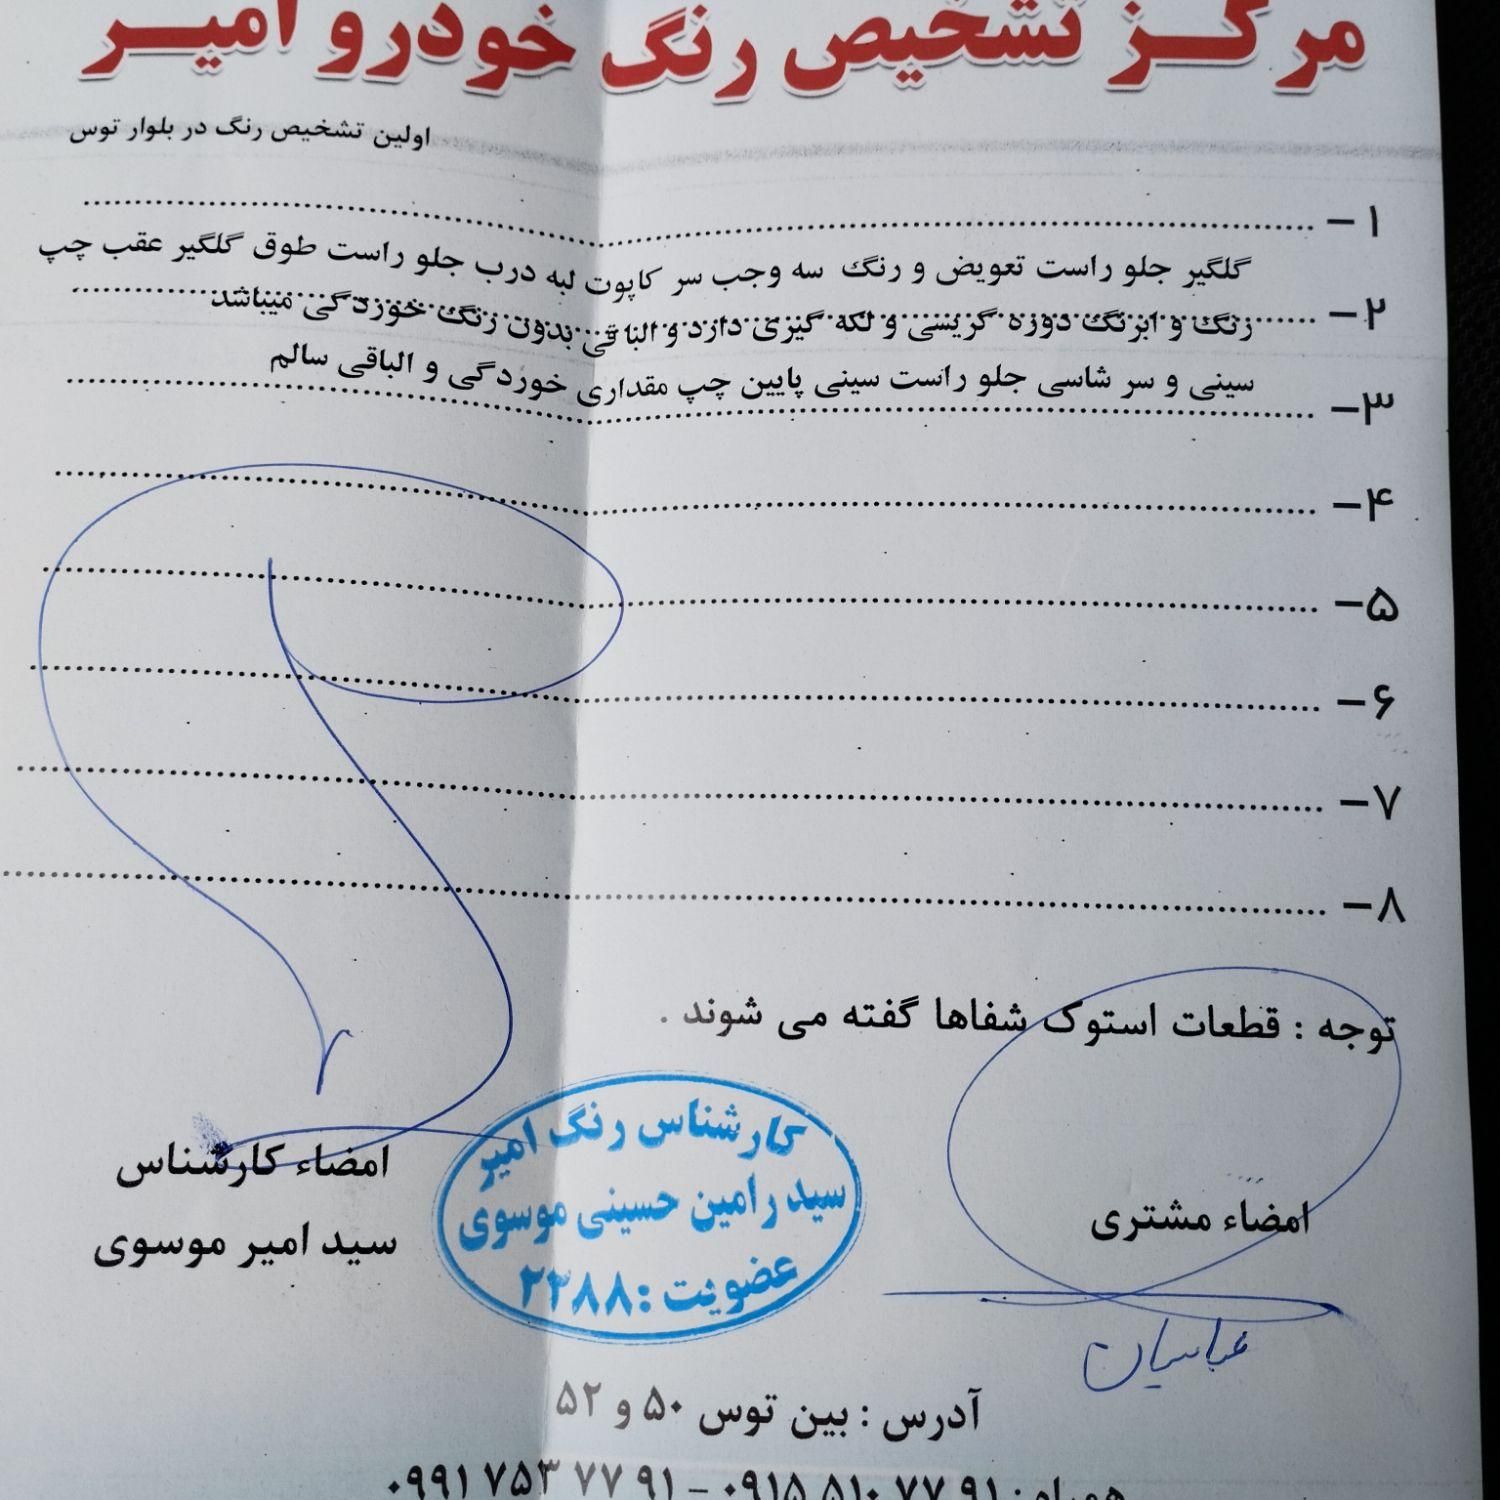 مرکز تشخیص رنگ خودرو امیر
اولین تشخیص رنگ در بلوار توس
۱-
گلگیر جلو راست تعویض و رنگ سه وجب سر کاپوت لبه درب جلو راست طوق گلگیر عقب چپ
۲-
رنگ و ابرنگ دوره گریسی و لکه گیری دارد و الباقی بدون رنگ خوردگی میباشد
سینی و سر شاسی جلو راست سینی پایین چپ مقداری خوردگی و الباقی سالم
۳-
۴-
۵-
۶-
۷-
۸-
توجه : قطعات استوک شفاها گفته می شوند .
کارشناس رنگ امیر
سید رامین حسینی موسوی
عضویت : ۲۲۸۸
امضاء کارشناس
سید امیر موسوی
امضاء مشتری
عباسیان
آدرس : بین توس ۵۰ و ۵۲
همراه : ۰۹۱۵ ۵۱۰ ۷۷ ۹۱ - ۰۹۹۱ ۷۵۳ ۷۷ ۹۱